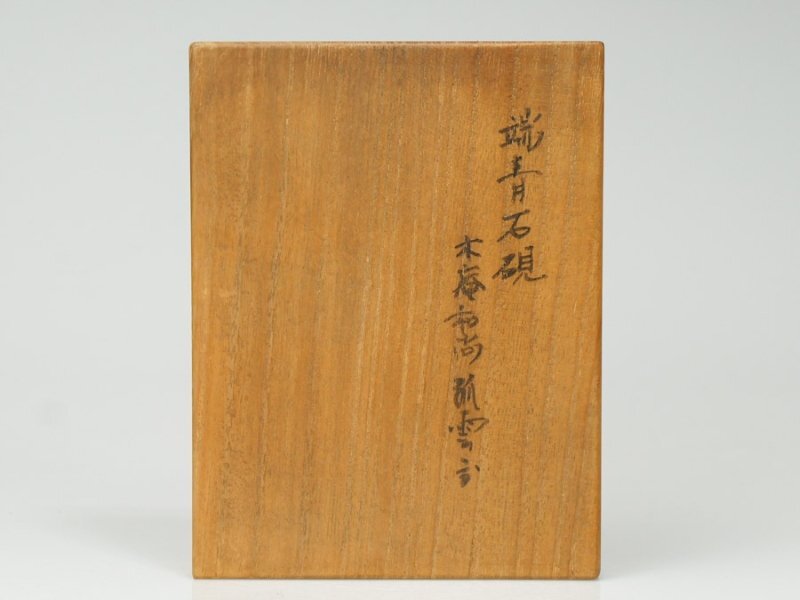 端青石硯
木庵和尚 孤雲